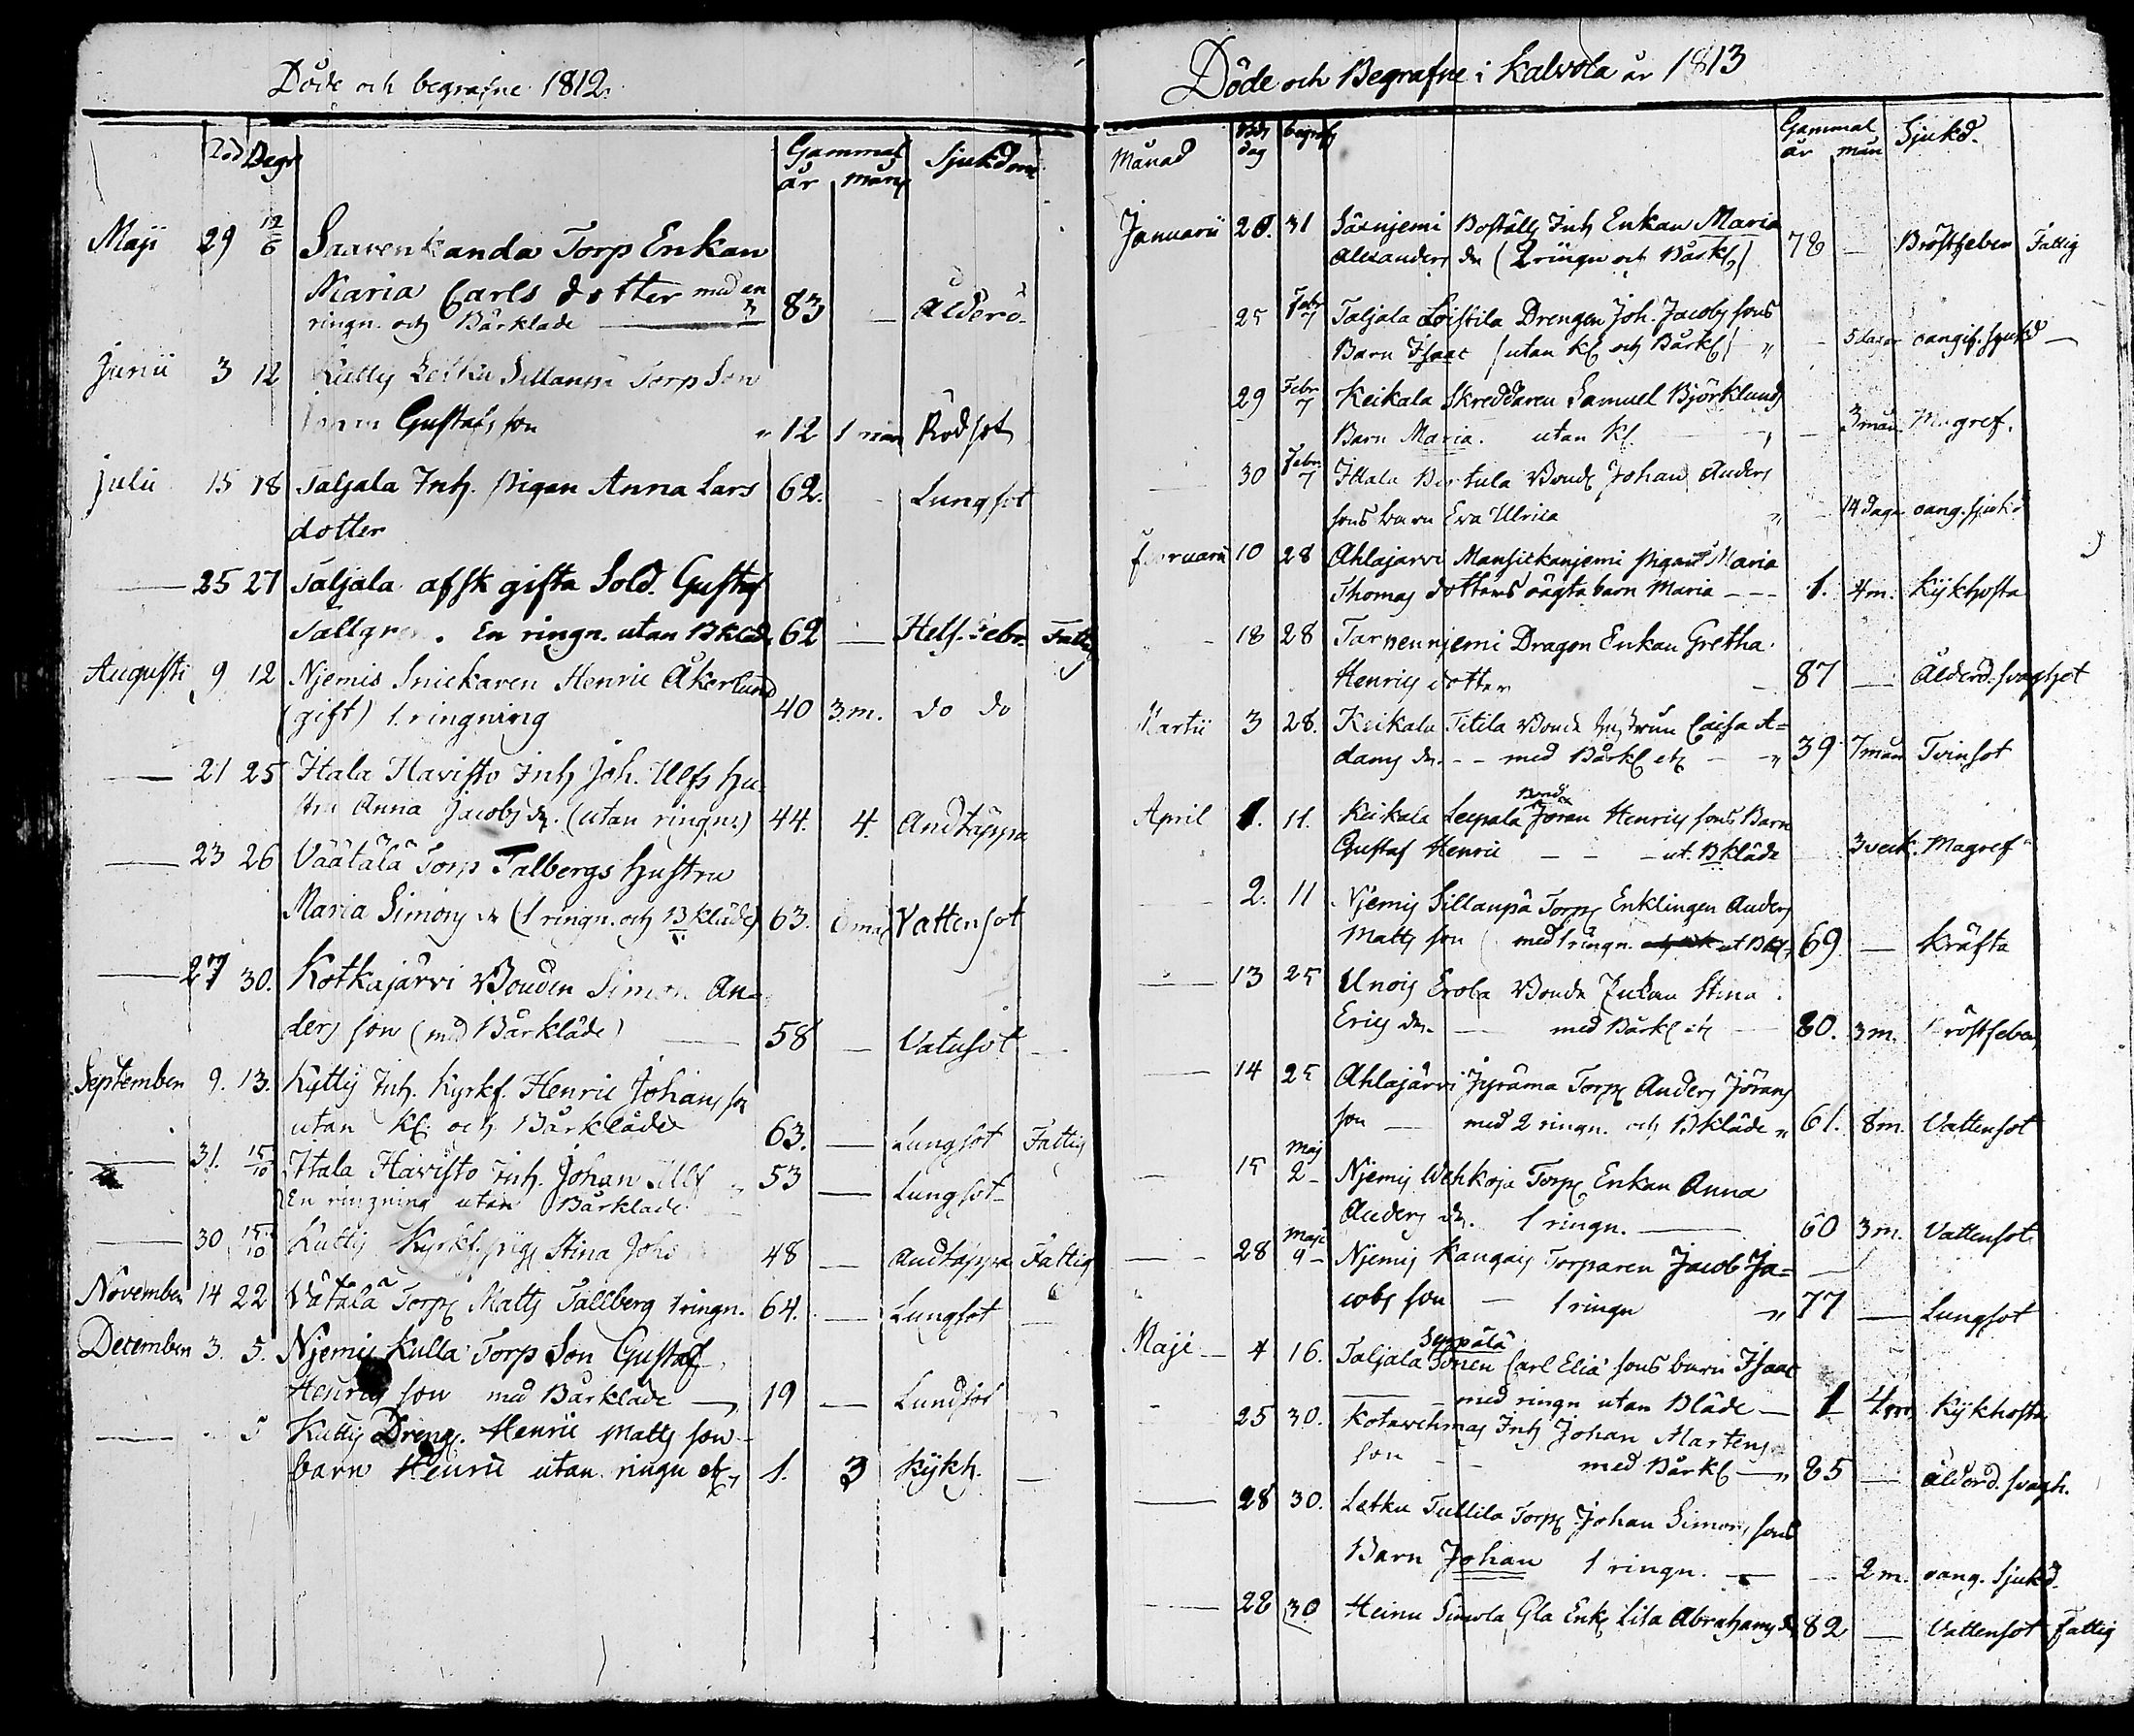 Döde och begrafne 1812.
Död Begr Gammal Sjukdom
år mån
Maji 29 12/6 Saarenkanda Torp Enkan
Maria Carls dotter med en
ringn. och Bårkläde 83 — Ålderd
Junii 3 12 Torp Son
Gustafs son 12 1 mån Rödsot
Julii 15 18 Taljala Inh. Pigan Anna Lars 62. Lungsot
dotter
— 25 27 Taljala afsk gifta Sold. Gustaf
En ringn. utan Bkläd 62 — Fattig
Augusti 9 12 Njemis Snickaren Henric Åkerlund
(gift) 1. ringning 40 3.m. do do
— 21 25 Itala Havisto Inh Joh. Ulfs Hu-
stru Anna Jacobs dr. (utan ringn.) 44. 4. Andtäppa
— 23 26 Väätälä Torp Talbergs Hustru
Maria Simons dr (1 ringn. och Bkläde) 63. Vattensot
— 27 30. Kotkajärvi Bonden Simon An-
ders son (med Bårkläde) 58 — Vatusot
September 9. 13. Kytty Inh. Kyrkf. Henric Johans son
utan Kl. och Bårkläde 63. — Lungsot Fattig
— 31. 15/10 Itala Havisto Inh. Johan Ulf 53 — Lungsot
En ringning utan Bårkläde
— 30 15/10 Kutty Kyrkf. Stina 48 — Andtäppa Fattig
November 14 22 Vätälä Torp Matts Tallberg 1 ringn. 64. — Lungsot
December 3. 5. Njemis Kulla Torp Son Gustaf
Henrics son med Bårkläde 19 —
— 5 Kutty Dreng. Henric Matts son
barn Henric utan ringn etc 1. 3 Kykh.
Döde och Begrafne i Kalvola år 1813
Månad dag begrafs Gammal Sjukd.
år mån
Januarii 20. 31 Boställs Inh Enkan Maria
Alexanders dr (2 ringn och Bårkl) 78 — Bröstfeber Fattig
25 Febr 7 Taljala Loistila Drengen Joh. Jacobs sons
Barn Isaac (utan Kl och Bårkl) 5 dagar oangif. sjukd —
29 Febr 7 Keikala Skreddaren Samuel Björklunds
Barn Maria. utan Kl. 3 mån. Magref.
— 30 Febr 7 Ittala Bertula Bond Johan Anders
sons barn Eva Ulrica 14 dagar oang. sjukd
Februarii 10 28 Ahlajarvi Mansickanjemi pigans Maria
Thomas dotters oägta barn Maria 1. 4 m. Kykhosta
18 28 Tarnennjemi Dragon Enkan Gretha
Henrics dotter 87 — Ålderd. svaghet
Martii 3 28. Keikala Titila Bond hustrun Caisa A-
dams dr. — med Bårkl etc 39 7 mån Tvinsot
April 1. 11. Keikala Leppala Bond Jöran Henrics sons Barn
Gustaf Henric — — ut. Bkläde 3 veck. Magref
— 2. 11 Njemis Sillanpä Torp Enklingen Anders
Matts son (med 1 ringn. 69 — Kräfta
— 13 25 Unois Erola Bonde Enkan Stina
Erics dr. — med Bårkl etc 80. 3 m. Bröstfeber
— 14 25 Ahlajärvi Jyräma Torp Anders Jörans
son — med 2 ringn. och Bkläde 61. 8 m. Vattensot
— 15 Maj 2 Njemis Wehkoja Torp Enkan Anna
Anders dr. 1 ringn. 60 3 m. Vattensot
— 28 Maji 9 Njemis Kangais Torparen Jacob Ja-
cobs son — 1 ringn 77 — Lungsot
Seppälä
Maji 4 16. Taljala Carl Elia sons barn Isaac
med ringn utan Bläde 1 4 m Kykhosta
25 30. Kotawehmas Inh Johan Martens
son — med Bårkl 85 — Ålderd. svagh.
— 28 30. Letku Tullila Torp Johan Simons sons
Barn Johan 1 ringn. — 2 m. oang. sjukd.
— 28 30 Heinu Simola Gla Enk Lisa Abrahams dr 82 — Vattensot Fattig